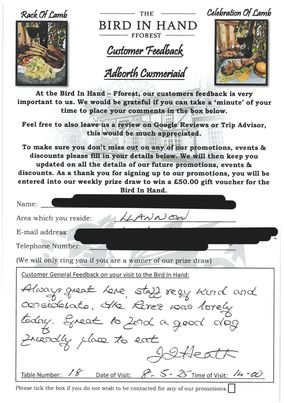 Rack Of Lamb
Celebration Of Lamb
THE
BIRD IN HAND
FFOREST
Customer Feedback
Adborth Cwsmeriaid
At the Bird In Hand – Fforest, our customers feedback is very
important to us. We would be grateful if you can take a ‘minute’ of your
time to place your comments in the box below.
Feel free to also leave us a review on Google Reviews or Trip Advisor,
this would be much appreciated.
To make sure you don't miss out on any of our promotions, events &
discounts please fill in your details below. We will then keep you
updated on all the details of our future promotions, events &
discounts. As a thank you for signing up to our promotions, you will be
entered into our weekly prize draw to win a £50.00 gift voucher for the
Bird In Hand.
Name:
Area which you reside: LLANNON
E-mail address:
Telephone Number:
(We will only ring you if you are a winner of our prize draw)
Customer General Feedback on your visit to the Bird In Hand:
Always great here staff very kind and
considerate, the liver was lovely
today. Great to find a good dog
friendly place to eat.
Heath
Table Number: 18 Date of Visit: 8-5-25 Time of Visit: 14-00
Please tick the box if you do not wish to be contacted for any of our promotions.